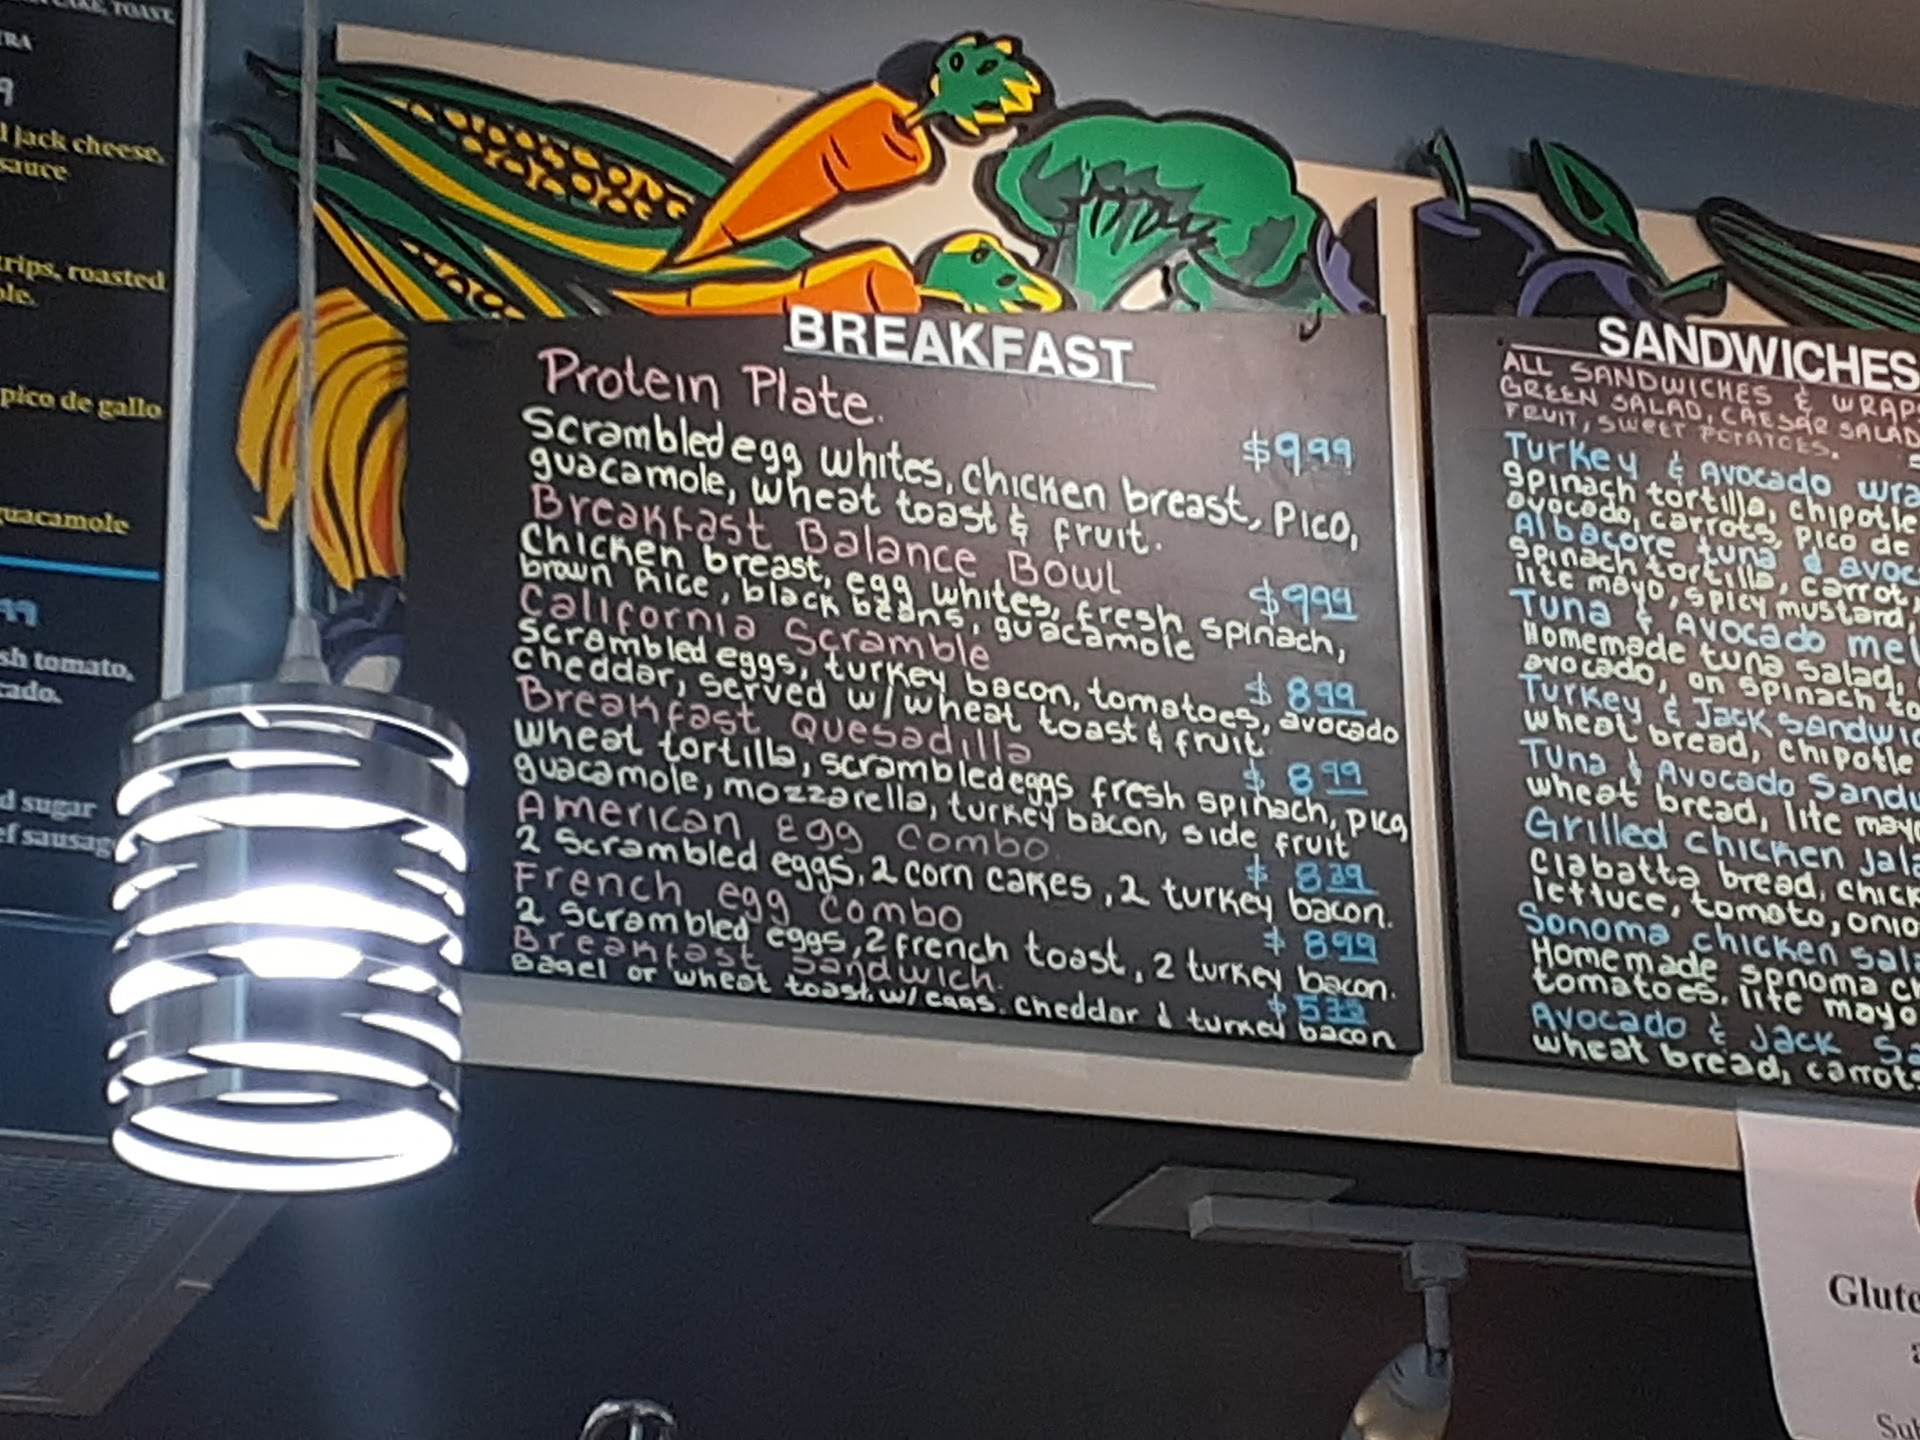 CAKE, TOAST,
9
l jack cheese,
sauce
trips, roasted
pico de gallo
guacamole
sh tomato,
d sugar
ef sausag
BREAKFAST
Protein Plate.
$9.99
Scrambled egg whites, chicken breast, pico,
guacamole, wheat toast & fruit.
Breakfast Balance Bowl
$9.99
Chicken breast, egg whites, fresh spinach,
brown rice, black beans, guacamole
California Scramble
$ 8.99
scrambled eggs, turkey bacon, tomatoes, avocado
cheddar, served w/wheat toast & fruit.
Breakfast Quesadilla
$ 8.99
wheat tortilla, scrambled eggs fresh spinach, pico,
guacamole, mozzarella, turkey bacon, side fruit
American Egg Combo.
$ 8.39
2 scrambled eggs, 2 corn cakes, 2 turkey bacon.
French egg combo
$ 8.99
2 scrambled eggs, 2 french toast, 2 turkey bacon.
Breakfast Sandwich.
Bagel or wheat toast, w/ eggs, cheddar & turkey bacon
SANDWICHES
ALL SANDWICHES & WRAP
GREEN SALAD, CAESAR SALAD
FRUIT, SWEET POTATOES.
Turkey & Avocado wra
Spinach tortilla, chipotle
avocado, carrots, pico de
Albacore tuna & avoc
spinach tortilla, carrot,
lite mayo, spicy mustard,
Tuna & Avocado mel
Homemade tuna salad,
avocado, on spinach to
Turkey & Jack Sandwic
wheat bread, chipotle
Tuna & Avocado Sandw
wheat bread, lite mayo
Grilled chicken Jala
Ciabatta bread, chick
lettuce, tomato, onio
Sonoma chicken sala
Homemade sonoma ch
tomatoes, lite mayo
Avocado & Jack Sa
wheat bread, carrots
Glute